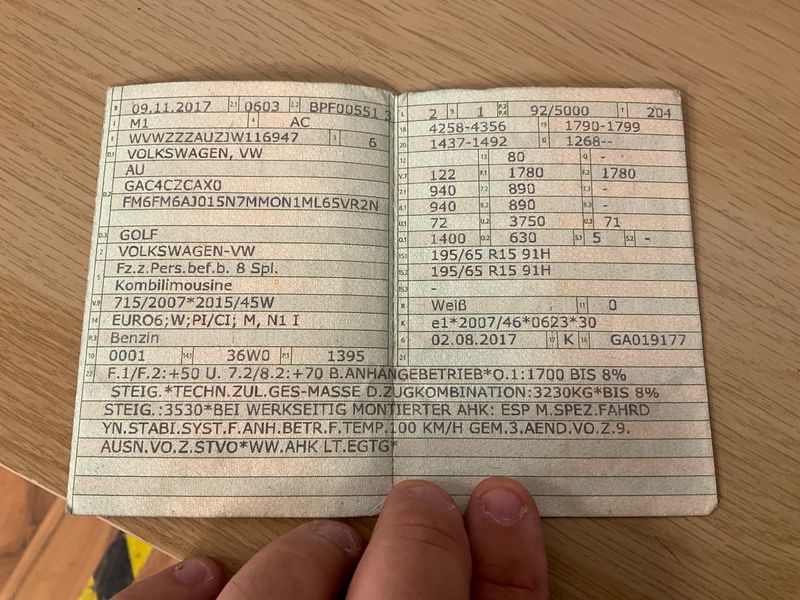 B 09.11.2017 2.1 0603 2.2 BPF00551 3
J M1 4 AC
E WVWZZZAUZJW116947 3 6
D.1 VOLKSWAGEN, VW
AU
D.2 GAC4CZCAX0
FM6FM6AJ015N7MMON1ML65VR2N
D.3 GOLF
2 VOLKSWAGEN-VW
5 Fz.z.Pers.bef.b. 8 Spl.
Kombilimousine
V.9 715/2007*2015/45W
14 EURO6;W;PI/CI; M, N1 I
P.3 Benzin
10 0001 14.1 36W0 P.1 1395
L 2 9 1 P.2 P.4 92/5000 T 204
18 4258-4356 19 1790-1799
20 1437-1492 G 1268--
12 13 80 Q -
V.7 122 F.1 1780 F.2 1780
7.1 940 7.2 890 7.3 -
8.1 940 8.2 890 8.3 -
U.1 72 U.2 3750 U.3 71
O.1 1400 O.2 630 S.1 5 S.2 -
15.1 195/65 R15 91H
15.2 195/65 R15 91H
15.3 -
R Weiß 11 0
K e1*2007/46*0623*30
6 02.08.2017 17 K 16 GA019177
21
22 F.1/F.2:+50 U. 7.2/8.2:+70 B.ANHANGEBETRIEB*O.1:1700 BIS 8%
STEIG.*TECHN.ZUL.GES-MASSE D.ZUGKOMBINATION:3230KG*BIS 8%
STEIG.:3530*BEI WERKSEITIG MONTIERTER AHK: ESP M.SPEZ.FAHRD
YN.STABI.SYST.F.ANH.BETR.F.TEMP.100 KM/H GEM.3.AEND.VO.Z.9.
AUSN.VO.Z.STVO*WW.AHK LT.EGTG*